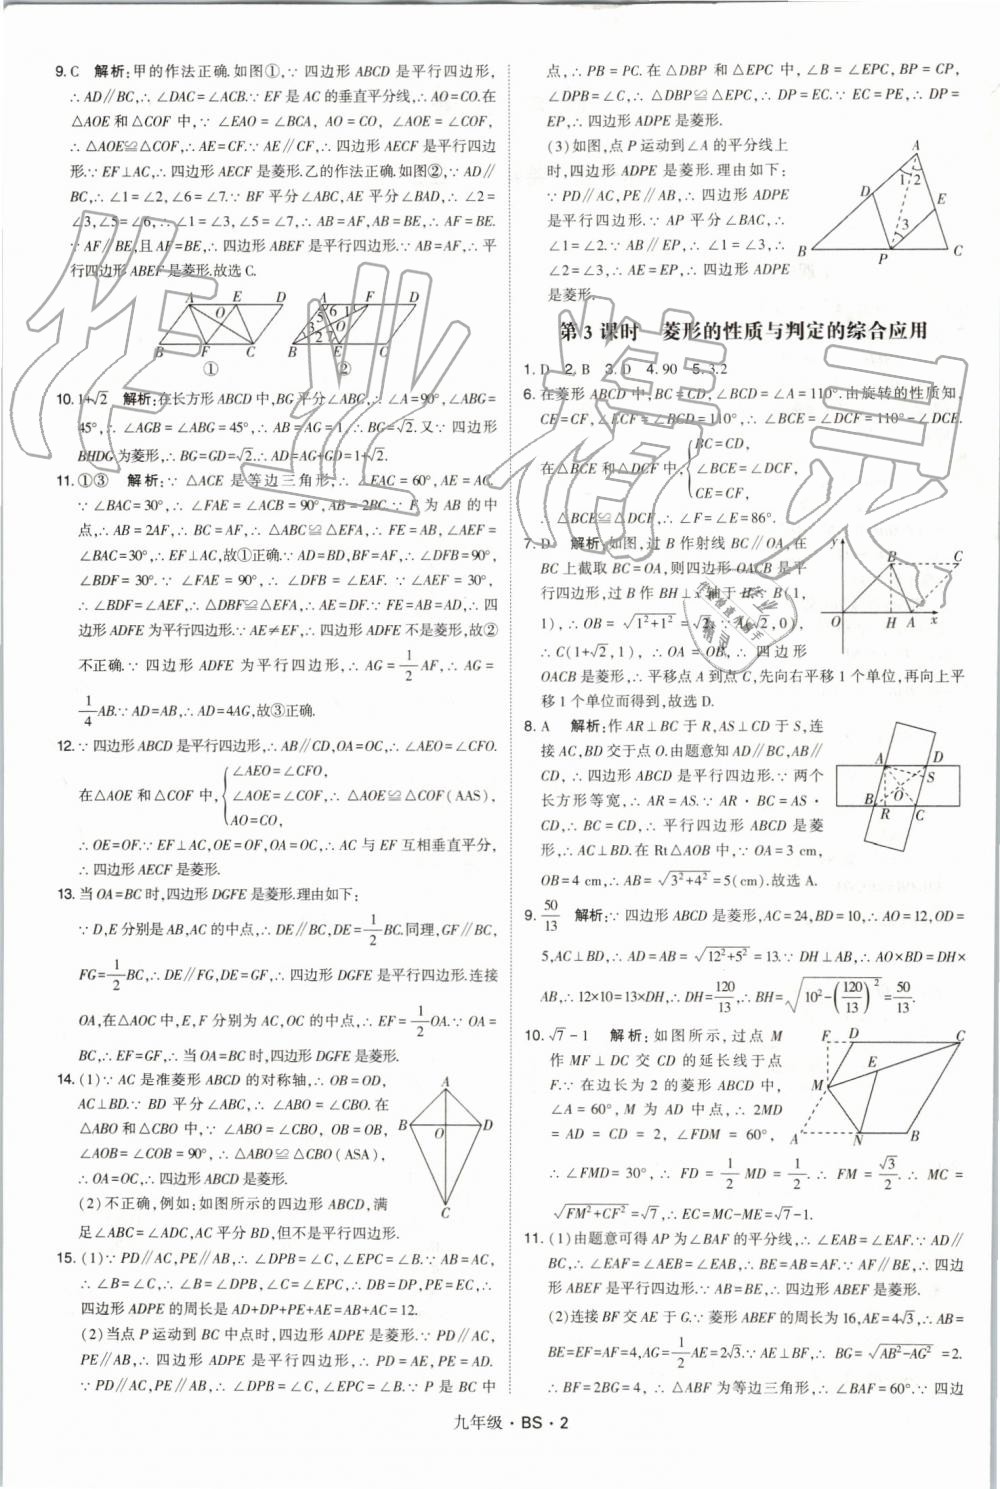 9. C　解析:甲的作法正确.如图①,∵四边形 ABCD 是平行四边形,
∴AD∥BC,∴∠DAC=∠ACB.∵EF 是 AC 的垂直平分线,∴AO=CO.在
△AOE 和△COF 中,∵∠EAO=∠BCA, AO=CO, ∠AOE=∠COF,
∴△AOE≌△COF,∴AE=CF.∵AE∥CF,∴四边形 AECF 是平行四边
形.∵EF⊥AC,∴四边形 AECF 是菱形.乙的作法正确.如图②,∵AD∥
BC,∴∠1=∠2,∠6=∠7.∵BF 平分∠ABC,AE 平分∠BAD,∴∠2=
∠3,∠5=∠6,∴∠1=∠3,∠5=∠7,∴AB=AF,AB=BE,∴AF=BE.
∵AF∥BE,且 AF=BE,∴四边形 ABEF 是平行四边形.∵AB=AF,∴平
行四边形 ABEF 是菱形.故选 C.
A E D
O
B F C
①
A F D
5 6 1
3 O
2 7
B E C
②
10. 1+√2　解析:在长方形 ABCD 中,BG 平分∠ABC,∴∠A=90°,∠ABG=
45°,∴∠AGB=∠ABG=45°,∴AB=AG=1,∴BG=√2.又∵四边形
BHDG 为菱形,∴BG=GD=√2.∴AD=AG+GD=1+√2.
11. ①③　解析:∵△ACE 是等边三角形,∴∠EAC=60°,AE=AC.
∵∠BAC=30°,∴∠FAE=∠ACB=90°,AB=2BC.∵F 为 AB 的中
点,∴AB=2AF,∴BC=AF,∴△ABC≌△EFA,∴FE=AB,∠AEF=
∠BAC=30°,∴EF⊥AC,故①正确.∵AD=BD,BF=AF,∴∠DFB=90°,
∠BDF=30°.∵∠FAE=90°,∴∠DFB=∠EAF.∵∠AEF=30°,
∴∠BDF=∠AEF,∴△DBF≌△EFA,∴AE=DF.∵FE=AB,∴四
边形 ADFE 为平行四边形.∵AE≠EF,∴四边形 ADFE 不是菱形,故②
不正确.∵四边形 ADFE 为平行四边形,∴AG=1/2AF,∴AG=
1/4AB.∵AD=AB,∴AD=4AG,故③正确.
12. ∵四边形 ABCD 是平行四边形,∴AB∥CD,OA=OC,∴∠AEO=∠CFO.
在△AOE 和△COF 中,{∠AEO=∠CFO,
∠AOE=∠COF,∴△AOE≌△COF(AAS),
AO=CO,
∴OE=OF.∵EF⊥AC,OE=OF,OA=OC,∴AC 与 EF 互相垂直平分,
∴四边形 AECF 是菱形.
13. 当 OA=BC 时,四边形 DGFE 是菱形.理由如下:
∵D,E 分别是 AB,AC 的中点,∴DE∥BC,DE=1/2BC.同理,GF∥BC,
FG=1/2BC,∴DE∥FG,DE=GF,∴四边形 DGFE 是平行四边形.连接
OA,在△AOC 中,E,F 分别为 AC,OC 的中点,∴EF=1/2OA.∵OA=
BC,∴EF=GF,∴当 OA=BC 时,四边形 DGFE 是菱形.
14. (1)∵AC 是准菱形 ABCD 的对称轴,∴OB=OD,
AC⊥BD.∵BD 平分∠ABC,∴∠ABO=∠CBO.在
△ABO 和△CBO 中,∵∠ABO=∠CBO, OB=OB,
∠AOB=∠COB=90°,∴△ABO≌△CBO(ASA),
∴OA=OC,∴四边形 ABCD 是菱形.
(2)不正确,例如:如图所示的四边形 ABCD,满
足∠ABC=∠ADC,AC 平分 BD,但不是平行四边形.
A
B O D
C
15. (1)∵PD∥AC,PE∥AB,∴∠DPB=∠C,∠EPC=∠B.∵AB=AC,
∴∠B=∠C,∴∠B=∠DPB,∠C=∠EPC,∴DB=DP,PE=EC,∴
四边形 ADPE 的周长是 AD+DP+PE+AE=AB+AC=12.
(2)当点 P 运动到 BC 中点时,四边形 ADPE 是菱形.∵PD∥AC,
PE∥AB,∴四边形 ADPE 是平行四边形,∴PD=AE, PE=AD.
∵PD∥AC,PE∥AB,∴∠DPB=∠C,∠EPC=∠B.∵P 是 BC 中
点,∴PB=PC.在△DBP 和△EPC 中,∠B=∠EPC,BP=CP,
∠DPB=∠C,∴△DBP≌△EPC,∴DP=EC.∵EC=PE,∴DP=
EP,∴四边形 ADPE 是菱形.
(3)如图,点 P 运动到∠A 的平分线上
时,四边形 ADPE 是菱形.理由如下:
∵PD∥AC,PE∥AB,∴四边形 ADPE
是平行四边形.∵AP 平分∠BAC,∴
∠1=∠2.∵AB∥EP,∴∠1=∠3,∴
∠2=∠3,∴AE=EP,∴四边形 ADPE
是菱形.
A
1 2
D E
3
B P C
第 3 课时　菱形的性质与判定的综合应用
1. D 2. B 3. D 4. 90 5. 3.2
6. 在菱形 ABCD 中,BC=CD,∠BCD=∠A=110°.由旋转的性质知,
CE=CF,∠ECF=∠BCD=110°,∴∠BCE=∠DCF=110°-∠DCE.
在△BCE 和△DCF 中,{BC=CD,
∠BCE=∠DCF,
CE=CF,
∴△BCE≌△DCF,∴∠F=∠E=86°.
7. D　解析:如图,过 B 作射线 BC∥OA,在
BC 上截取 BC=OA,则四边形 OACB 是平
行四边形,过 B 作 BH⊥x 轴于 H.∵B(1,
1),∴OB=√(1²+1²)=√2.∵A(√2,0),
∴C(1+√2,1),∴OA=OB,∴四边形
OACB 是菱形,∴平移点 A 到点 C,先向右平移 1 个单位,再向上平
移 1 个单位而得到,故选 D.
y B C
O H A x
8. A　解析:作 AR⊥BC 于 R,AS⊥CD 于 S,连
接 AC,BD 交于点 O.由题意知 AD∥BC,AB∥
CD,∴四边形 ABCD 是平行四边形.∵两个
长方形等宽,∴AR=AS.∵AR·BC=AS·
CD,∴BC=CD,∴平行四边形 ABCD 是菱
形,∴AC⊥BD.在 Rt△AOB 中,∵OA=3 cm,
OB=4 cm,∴AB=√(3²+4²)=5(cm).故选 A.
A D
S
O
B
R C
9. 50/13　解析:∵四边形 ABCD 是菱形,AC=24,BD=10,∴AO=12,OD=
5,AC⊥BD,∴AD=AB=√(12²+5²)=13.∵DH⊥AB,∴AO×BD=DH×
AB,∴12×10=13×DH,∴DH=120/13,∴BH=√(10²-(120/13)²)=50/13.
10. √7-1　解析:如图所示,过点 M
作 MF⊥DC 交 CD 的延长线于点
F.∵在边长为 2 的菱形 ABCD 中,
∠A=60°,M 为 AD 中点,∴2MD
=AD=CD=2, ∠FDM=60°,
∴∠FMD=30°,∴FD=1/2MD=1/2.∴FM=√3/2.∴MC=
√(FM²+CF²)=√7,∴EC=MC-ME=√7-1.
F D C
E
M
A N B
11. (1)由题意可得 AP 为∠BAF 的平分线,∴∠EAB=∠EAF.∵AD∥
BC,∴∠EAF=∠AEB=∠EAB,∴BE=AB=AF.∵AF∥BE,∴四边
形 ABEF 是平行四边形.∵AB=BE,∴四边形 ABEF 是菱形.
(2)连接 BF 交 AE 于 G.∵菱形 ABEF 的周长为 16,AE=4√3,∴AB=
BE=EF=AF=4,AG=1/2AE=2√3.∵AE⊥BF,∴BG=√(AB²-AG²)=2.
∴BF=2BG=4,∴△ABF 为等边三角形,∴∠BAF=60°.∵四边
九年级·BS·2
作业精灵